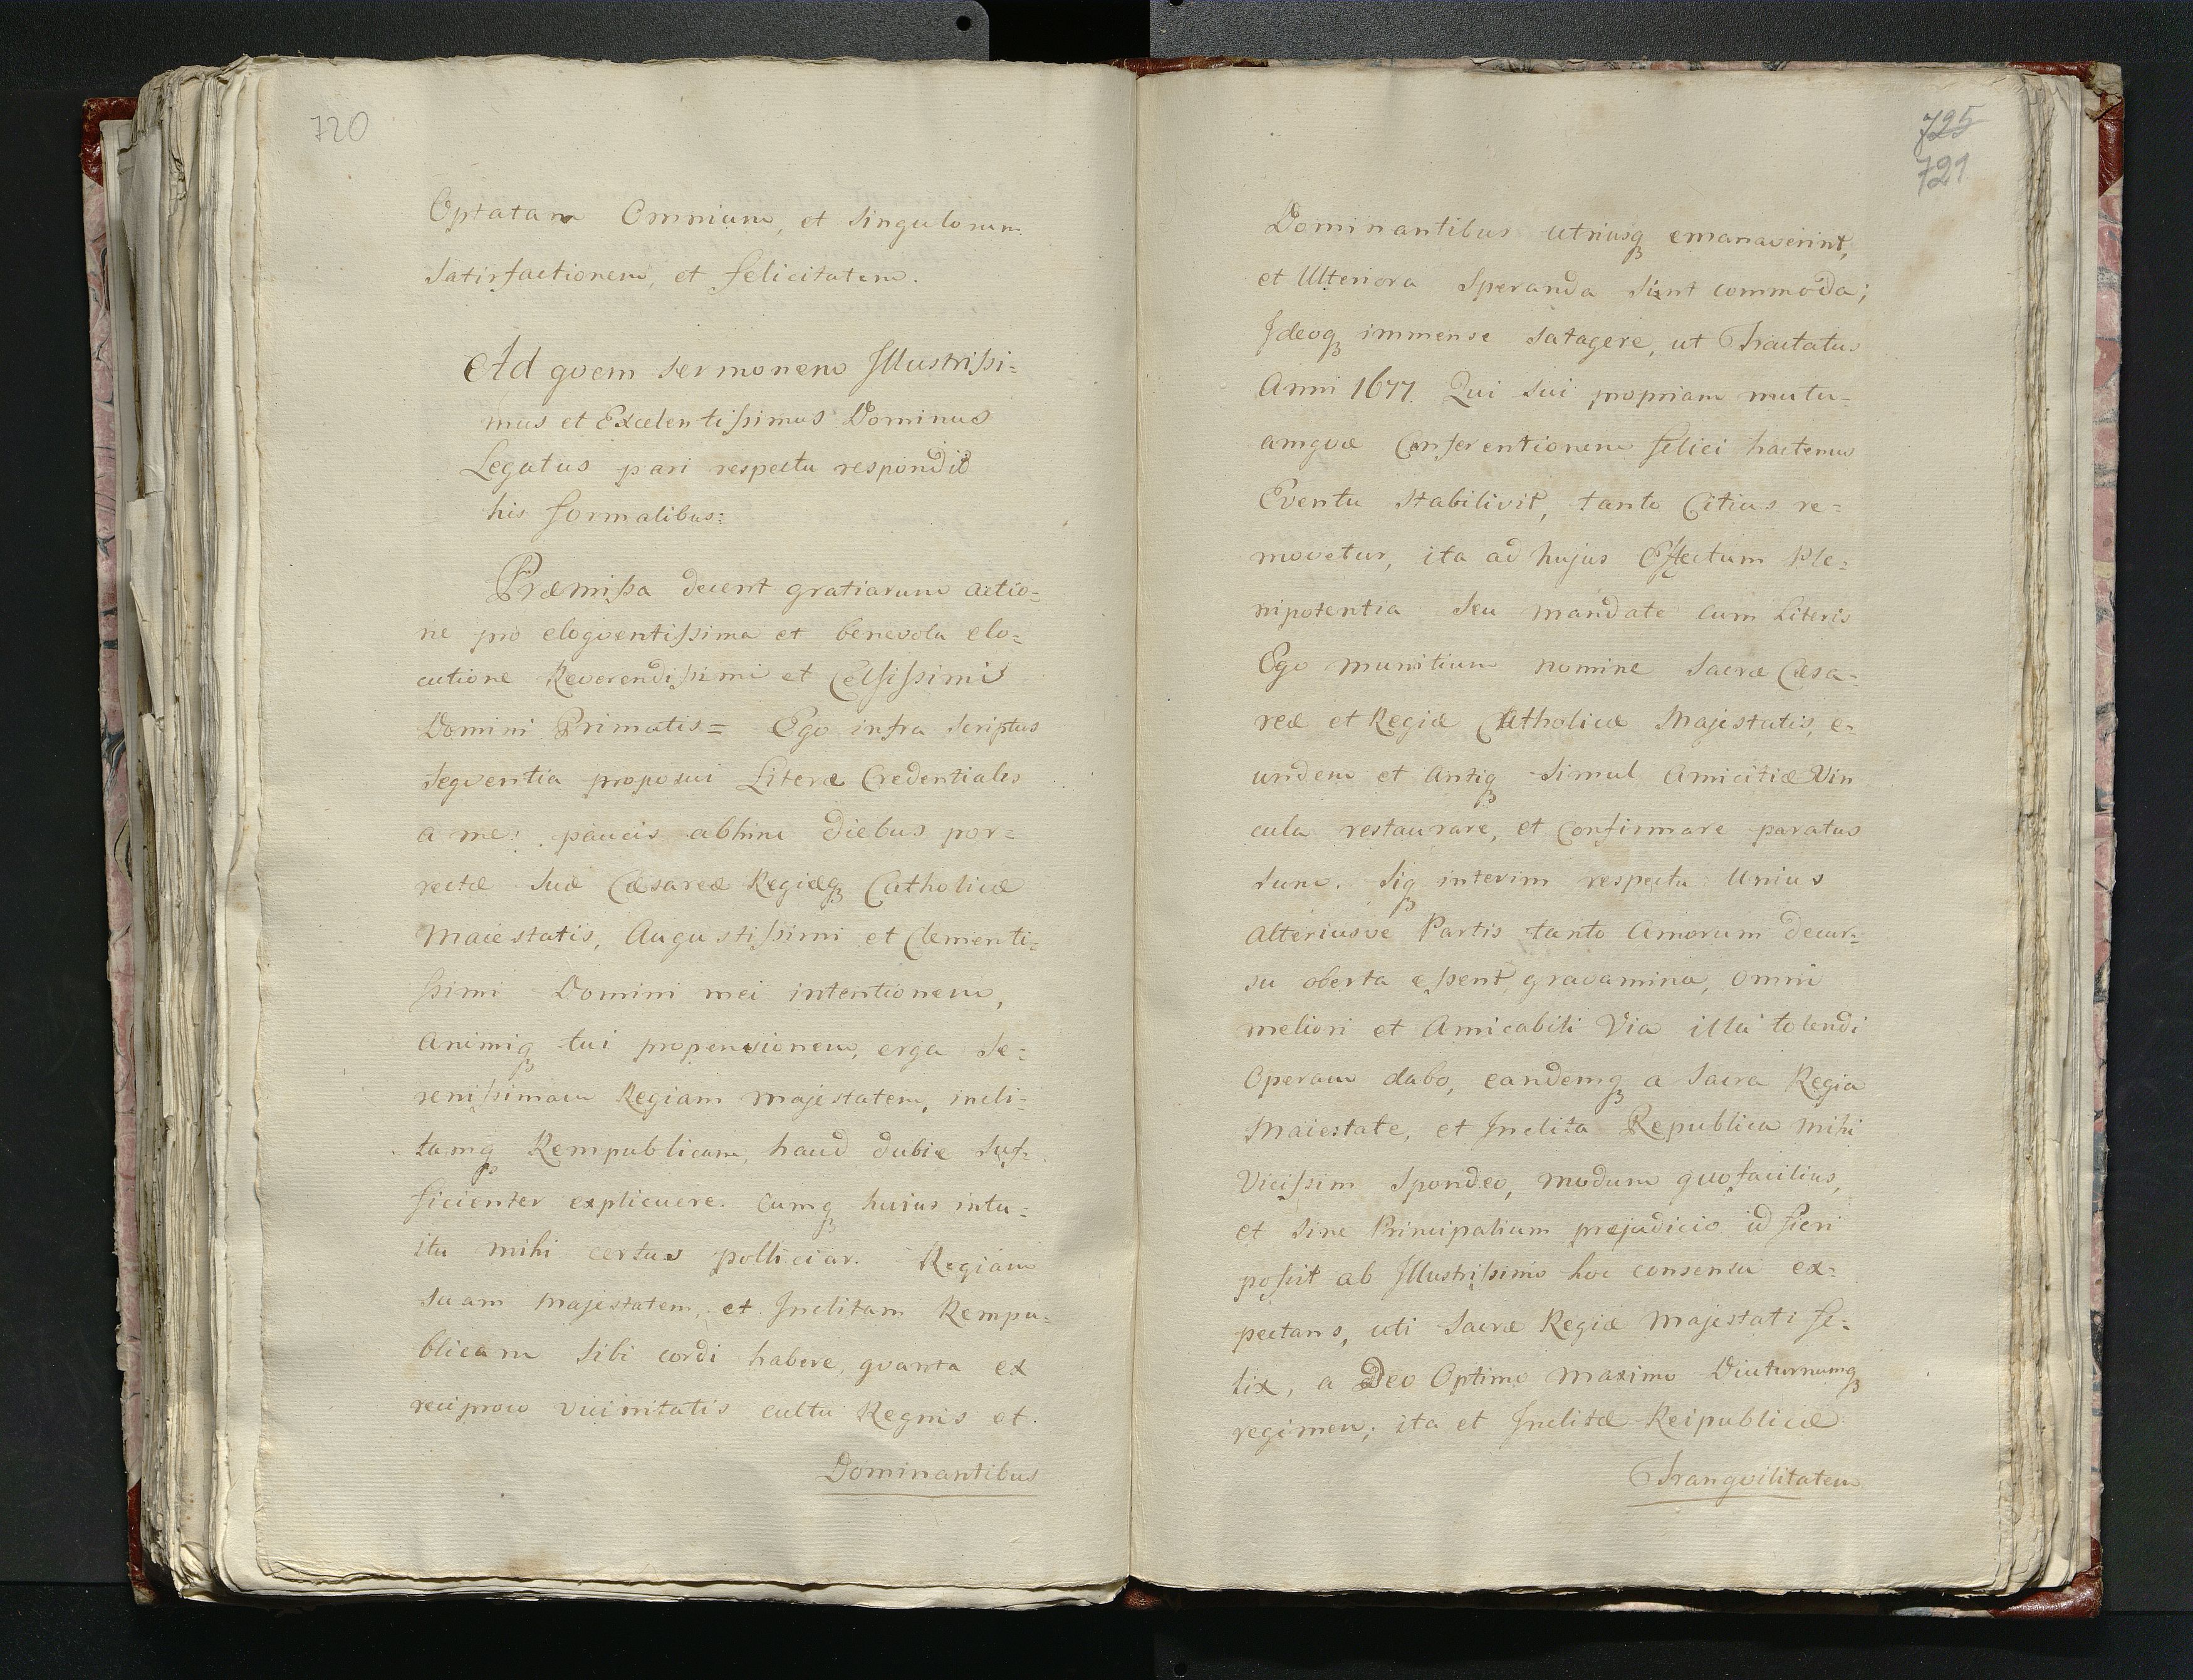 720
Optatam Omnium, et singulorum
Satisfactionem, et felicitatem.
Ad qvem sermonem Illustrissi=
mus et Excelentissimus Dominus
Legatus pari respectu respondit
his formalibus:
Præmissa decent gratiarum actio=
ne pro eloqventissima et benevola elo=
cutione Reverendissimi et Celsissimi
Domini Primatis= Ego infra scriptus
seqventia proposui Literæ Credentiales
a me: paucis abhinc diebus por=
rectæ Suæ Cæsareæ Regiæqꝫ Catholicæ
Maiestatis, Augustissimi et Clementi=
ssimi Domini mei intentionem,
animiqꝫ tui propensionem, erga Se=
renissimam Regiam Majestatem, incli=
tamqꝫ Rempublicam, haud dubie Suf=
ficienter explicuere. Cumqꝫ huius intu=
itu mihi certus polliciar. Regiam
Suam Majestatem, et Inclitam Rempu=
blicam Sibi cordi habere, qvanta ex
reciproco vicinitatis cultu Regnis et
Dominantibus
725
721
Dominantibus utriusqꝫ emanaverint,
et Ulteriora Speranda Sint commoda;
Ideoqꝫ immense Satagere, ut Tractatus
Anni 1677. Qui Sui propriam mutu=
amqve Conferentionem felici hactenus
Eventu Stabilivit, tanto Citius re=
movetur, ita ad hujus Effectum Ple=
nipotentia Seu mandato cum Literis
Ego munitium nomine Sacræ Cæsa=
reæ et Regiæ Catholicæ Majestatis, e=
undem et Antiqꝫ Simul Amicitiæ Vin
cula restaurare, et Confirmare paratus
Sum. Siqꝫ interim respectu Unius
alteriusve Partis tanto Amorum decur=
su oberta essent gravamina, omni
meliori et Amicabili Via illa tolendi
Operam dabo, eandemqꝫ a Sacra Regia
Maiestate, et Inclita Republica mihi
Vicissim Spondeo, modum quo facilius,
et Sine Principalium præjudicio id fieri
possit ab Illustrissimo hoc consensu ex=
pectans, uti Sacræ Regiæ Majestati fe=
lix, a Deo Optimo Maximo Diuturnumqꝫ
regimen; ita et Inclitæ Reipublicæ
Tranqvilitatem